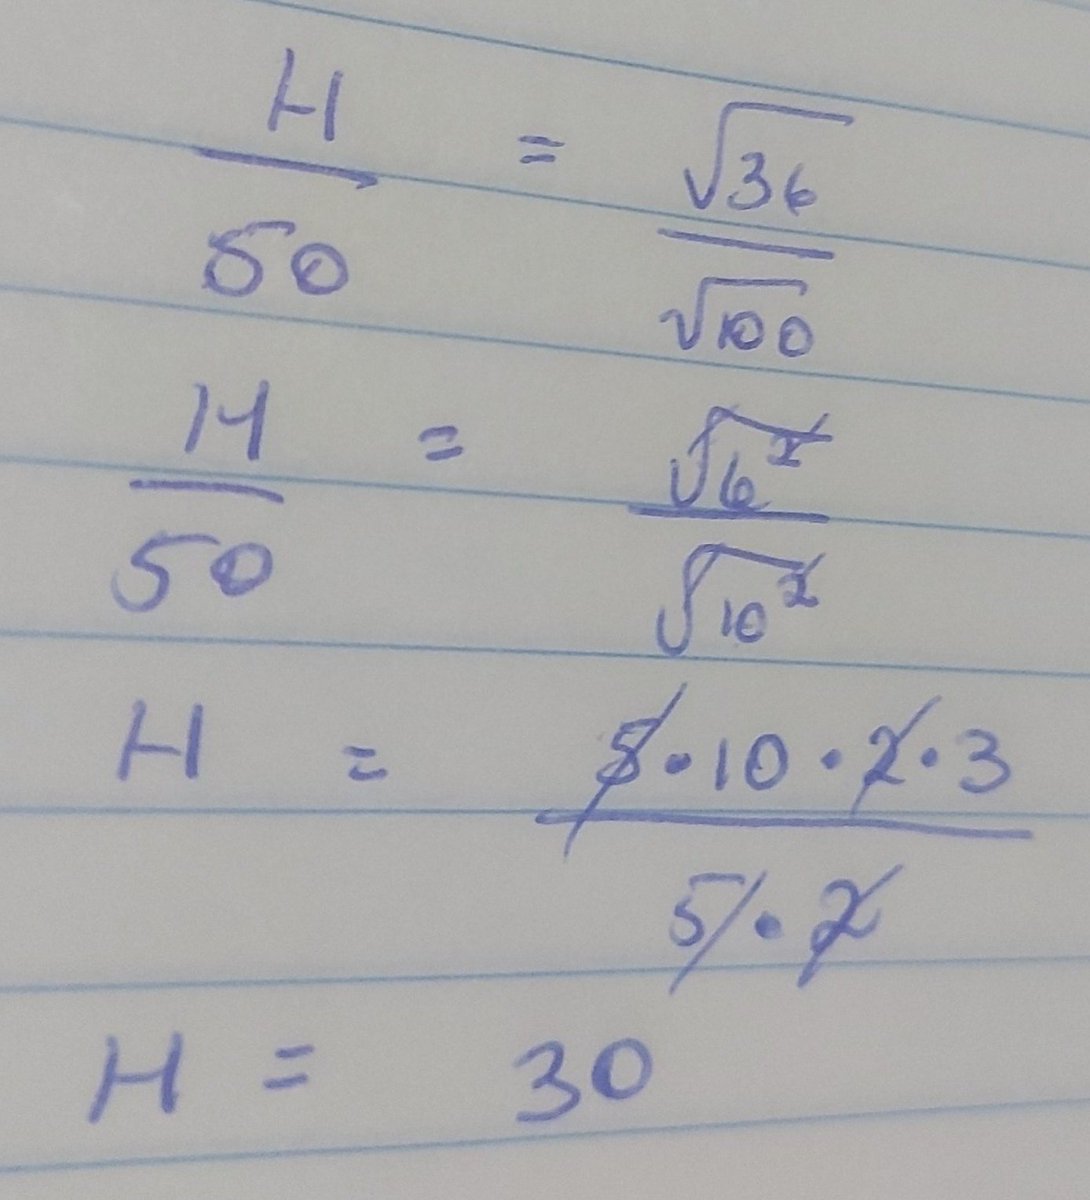 H/50 = √36/√100
H/50 = √6²/√10²
H = 5·10·2·3/5·2
H = 30